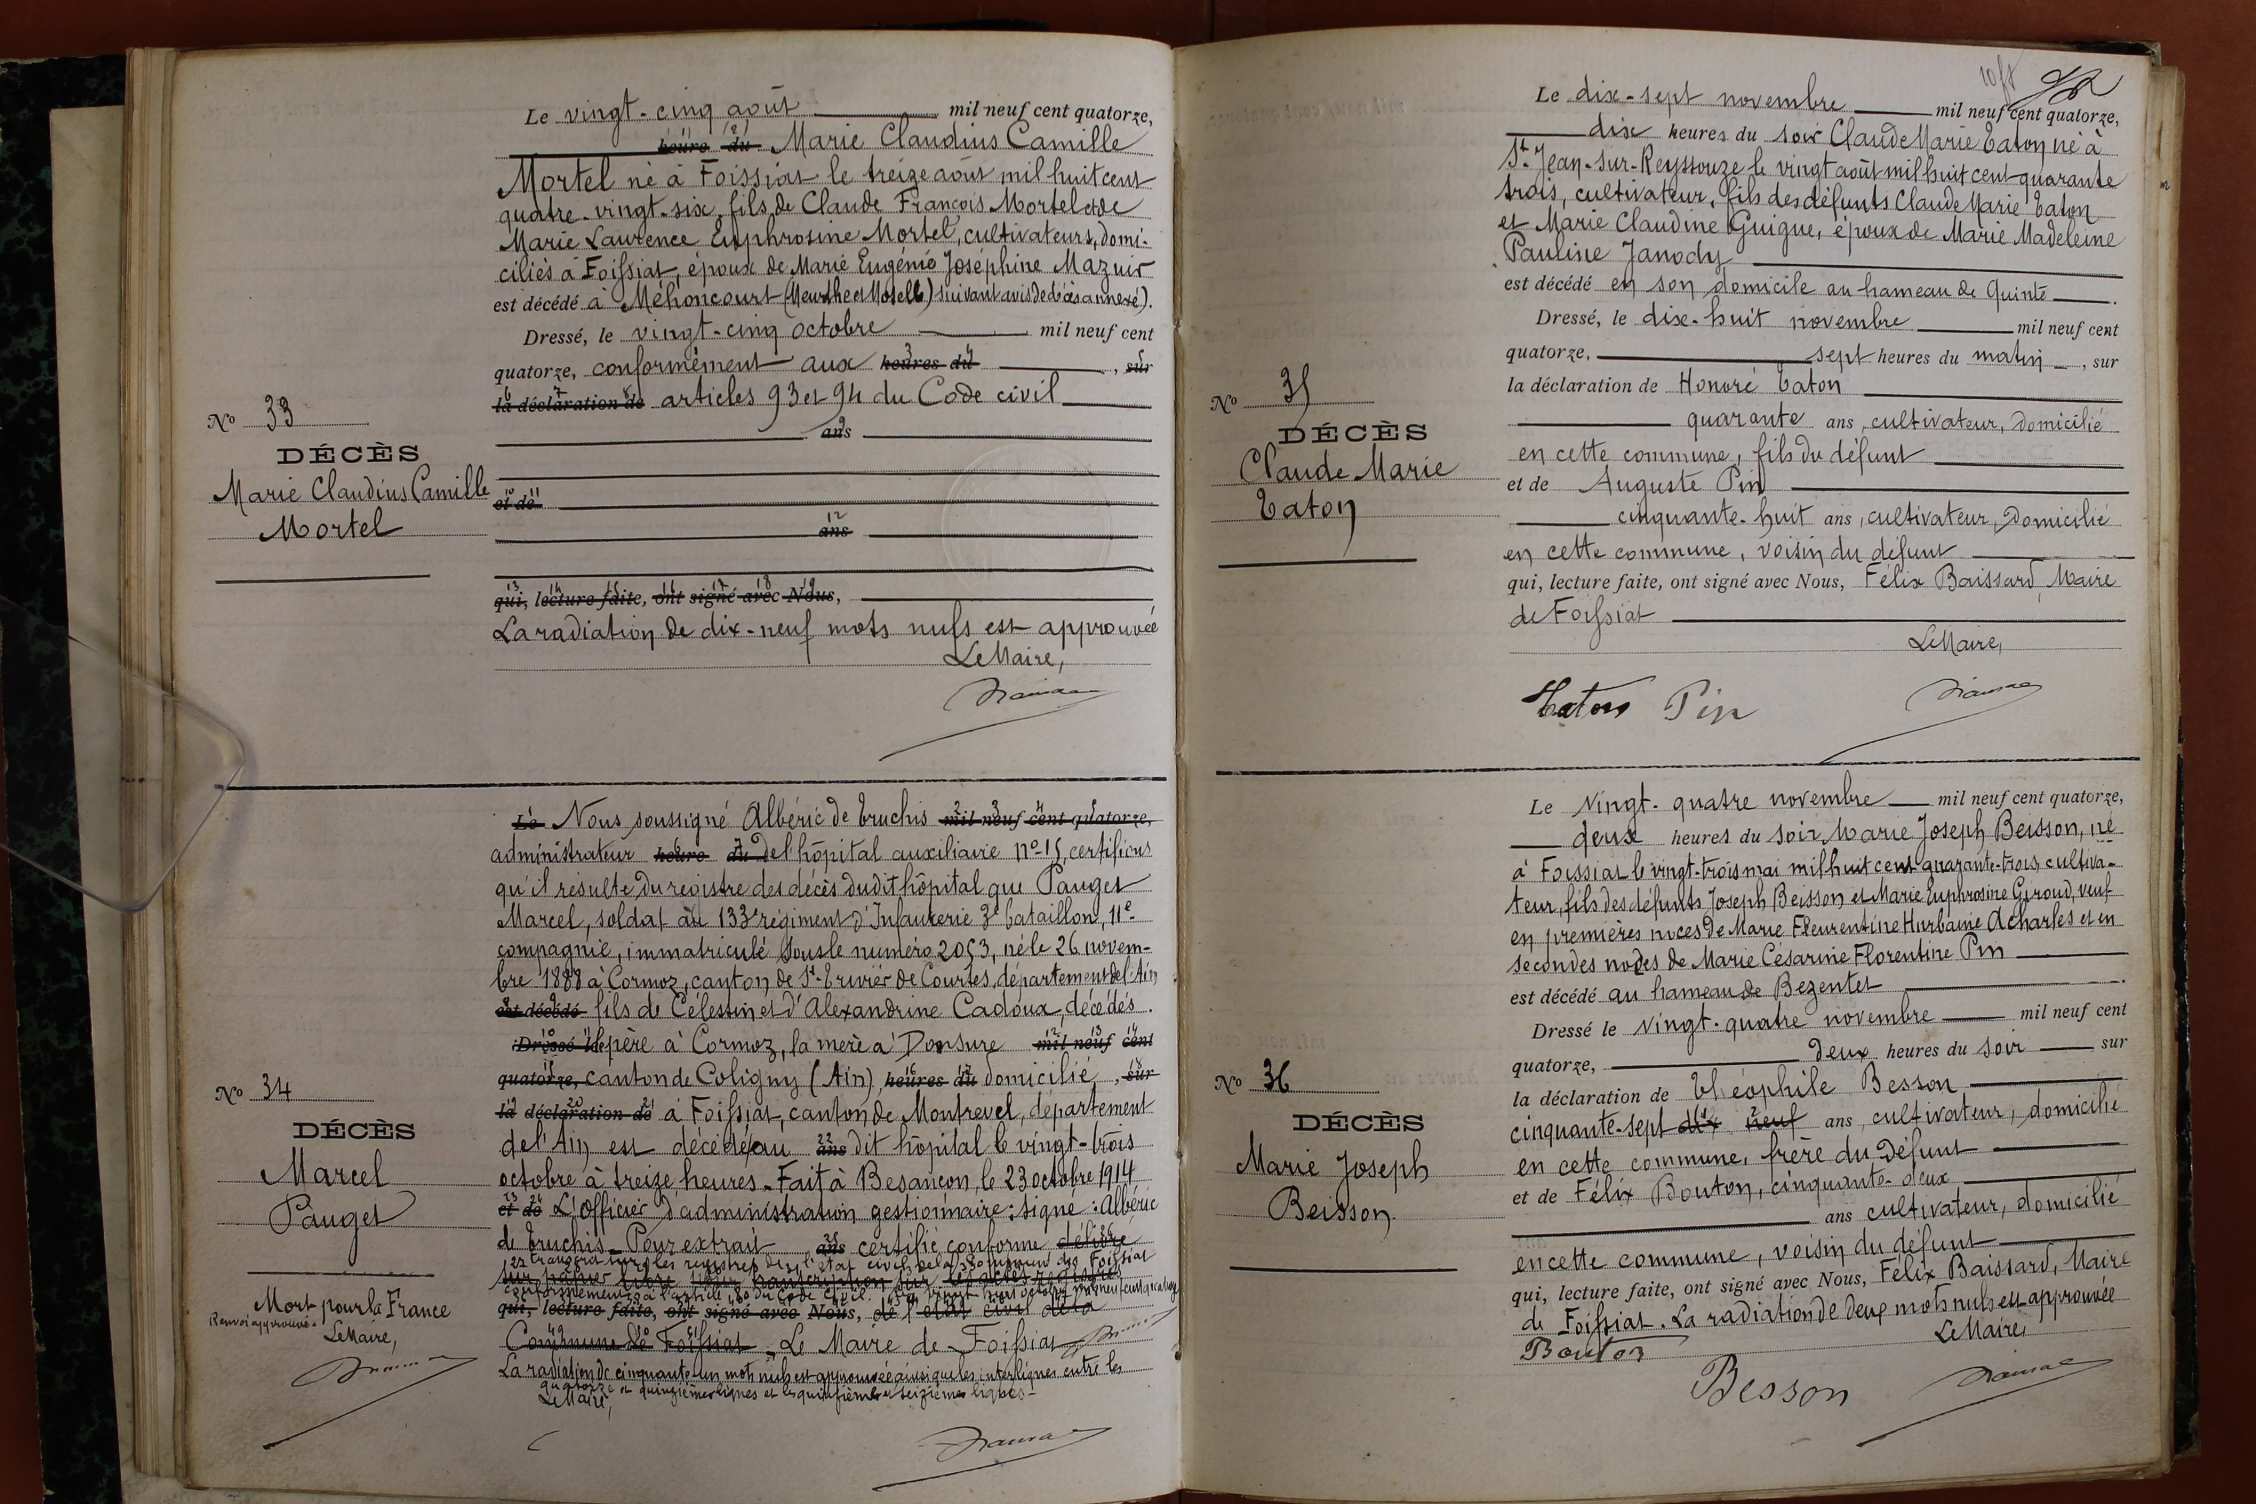 Le vingt-cinq août mil neuf cent quatorze,
heure du Marie Claudius Camille
Mortel né à Foissiat le treize août mil huit cent
quatre-vingt-six, fils de Claude François Mortel et de
Marie Laurence Euphrosine Mortel, cultivateurs, domi-
ciliés à Foissiat, époux de Marie Eugénie Joséphine Mazuir
est décédé à Méhoncourt (Meurthe et Moselle) suivant avis de décès annexé).
Dressé, le vingt-cinq octobre mil neuf cent
quatorze, conformément aux heures du , sur
la déclaration de articles 93 et 94 du Code civil
ans
No 33
DÉCÈS
Marie Claudius Camille
Mortel
et de
ans
qui, lecture faite, ont signé avec Nous,
La radiation de dix-neuf mots nuls est approuvée
Le Maire,
Le Nous soussigné Albéric de Truchis mil neuf cent quatorze,
administrateur heure du de l'hôpital auxiliaire no 15, certifions
qu'il résulte du registre des décès dudit hôpital que Pauget
Marcel, soldat au 133e régiment d'Infanterie 3e bataillon, 11e
compagnie, immatriculé sous le numéro 2053, né le 26 novem-
bre 1888 à Cormoz, canton de St-Trivier de Courtes, département de l'Ain
est décédé fils de Célestin et d'Alexandrine Cadoux, décédés.
Dressé le père à Cormoz, la mère à Donsure mil neuf cent
quatorze, canton de Coligny (Ain), heures du domicilié , sur
la déclaration de à Foissiat, canton de Montrevel, département
de l'Ain est décédé au ans dit hôpital le vingt-trois
octobre à treize heures. Fait à Besançon, le 23 octobre 1914
et de L'Officier d'administration gestionnaire: signé: Albéric
de Truchis. Pour extrait ans certifié conforme délivré
transcrit sur les registres de l'état civil de la commune de Foissiat
sur papier libre pour transcription sur
conformément à l'article 80 du Code Civil. vingt huit octobre mil neuf cent quatorze
qui, lecture faite, ont signé avec Nous, de l'état civil de la
Commune de Foissiat. Le Maire de Foissiat
La radiation de cinquante un mots nuls est approuvée ainsi que les interlignes entre les
quatorze et quinzième lignes et les quinzième et seizième lignes.
Le Maire,
No 34
DÉCÈS
Marcel
Pauget
Mort pour la France
Renvoi approuvé.
Le Maire,
Le dix-sept novembre mil neuf cent quatorze,
dix heures du soir Claude Marie Taton né à
St Jean-sur-Reyssouze le vingt août mil huit cent quarante
trois, cultivateur, fils des défunts Claude Marie Taton
et Marie Claudine Guigue, époux de Marie Madeleine
Pauline Janody
est décédé en son domicile au hameau de Quinte .
Dressé, le dix-huit novembre mil neuf cent
quatorze, sept heures du matin , sur
la déclaration de Honoré Taton
quarante ans, cultivateur, domicilié
en cette commune, fils du défunt
et de Auguste Pin
cinquante-huit ans, cultivateur, domicilié
en cette commune, voisin du défunt
qui, lecture faite, ont signé avec Nous, Félix Baissard, Maire
de Foissiat
Le Maire,
Taton Pin
No 35
DÉCÈS
Claude Marie
Taton
Le vingt-quatre novembre mil neuf cent quatorze,
deux heures du soir, Marie Joseph Beisson, né
à Foissiat le vingt-trois mai mil huit cent quarante-trois, cultiva-
teur, fils des défunts Joseph Beisson et Marie Euphrosine Giroud, veuf
en premières noces de Marie Fleurentine Hurbainie Acharles et en
secondes noces de Marie Césarine Florentine Pin
est décédé au hameau de Bezentet .
Dressé le vingt-quatre novembre mil neuf cent
quatorze, deux heures du soir sur
la déclaration de Théophile Besson
cinquante-sept dix neuf ans, cultivateur, domicilié
en cette commune, frère du défunt
et de Félix Bouton, cinquante-deux
ans cultivateur, domicilié
en cette commune, voisin du défunt
qui, lecture faite, ont signé avec Nous, Félix Baissard, Maire
de Foissiat. La radiation de deux mots nuls est approuvée
Le Maire,
Bouton
Besson
No 36
DÉCÈS
Marie Joseph
Beisson.